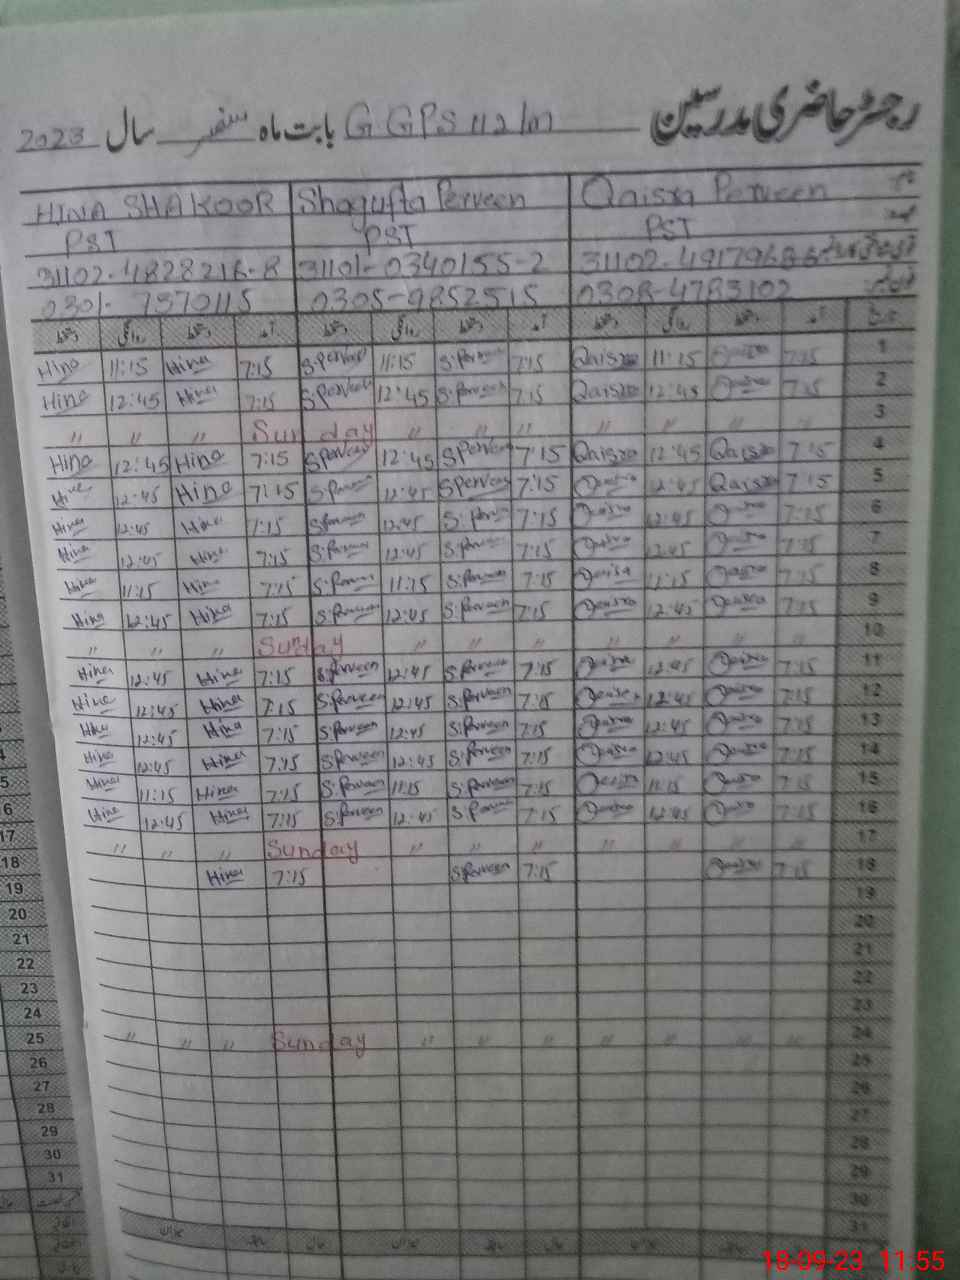 رجسٹر حاضری مدرسین G GPS 112/m بابت ماہ ستمبر سال 2023
HINA SHAKOOR Shagufta Perveen Qaisra Perveen نام
PST PST PST عہدہ
31102-4828216-8 31101-0340155-2 31102-4917968-6
0301-7570115 0305-9852515 0308-4783102 فون نمبر
دستخط روانگی دستخط آمد دستخط روانگی دستخط آمد دستخط روانگی دستخط آمد تاریخ
Hina 11:15 Hina 7:15 S.Perveen 11:15 S.Perveen 7:15 Qaisra 11:15 Qaisra 7:15 1
Hina 12:45 Hina 7:15 S.Perveen 12:45 S.Perveen 7:15 Qaisra 12:45 Qaisra 7:15 2
" " " Sunday " " " " " " " 3
Hina 12:45 Hina 7:15 S.Perveen 12:45 S.Perveen 7:15 Qaisra 12:45 Qaisra 7:15 4
Hina 12:45 Hina 7:15 S.Perveen 12:45 S.Perveen 7:15 Qaisra 12:45 Qaisra 7:15 5
Hina 12:45 Hina 7:15 S.Perveen 12:45 S.Perveen 7:15 Qaisra 12:45 Qaisra 7:15 6
Hina 12:45 Hina 7:15 S.Perveen 12:45 S.Perveen 7:15 Qaisra 12:45 Qaisra 7:15 7
Hina 11:15 Hina 7:15 S.Perveen 11:15 S.Perveen 7:15 Qaisra 11:15 Qaisra 7:15 8
Hina 12:45 Hina 7:15 S.Perveen 12:45 S.Perveen 7:15 Qaisra 12:45 Qaisra 7:15 9
" " " Sunday " " " " " " " 10
Hina 12:45 Hina 7:15 S.Perveen 12:45 S.Perveen 7:15 Qaisra 12:45 Qaisra 7:15 11
Hina 12:45 Hina 7:15 S.Perveen 12:45 S.Perveen 7:15 Qaisra 12:45 Qaisra 7:15 12
Hina 12:45 Hina 7:15 S.Perveen 12:45 S.Perveen 7:15 Qaisra 12:45 Qaisra 7:15 13
Hina 12:45 Hina 7:15 S.Perveen 12:45 S.Perveen 7:15 Qaisra 12:45 Qaisra 7:15 14
Hina 11:15 Hina 7:15 S.Perveen 11:15 S.Perveen 7:15 Qaisra 11:15 Qaisra 7:15 15
Hina 12:45 Hina 7:15 S.Perveen 12:45 S.Perveen 7:15 Qaisra 12:45 Qaisra 7:15 16
17 " " " Sunday " " " " " " " 17
18 Hina 7:15 S.Perveen 7:15 Qaisra 7:15 18
19 19
20 20
21 21
22 22
23 23
24 " " " Sunday " " " " " " " 24
25 25
26 26
27 27
28 28
29 29
30 30
31 31
18-09-23 11:55